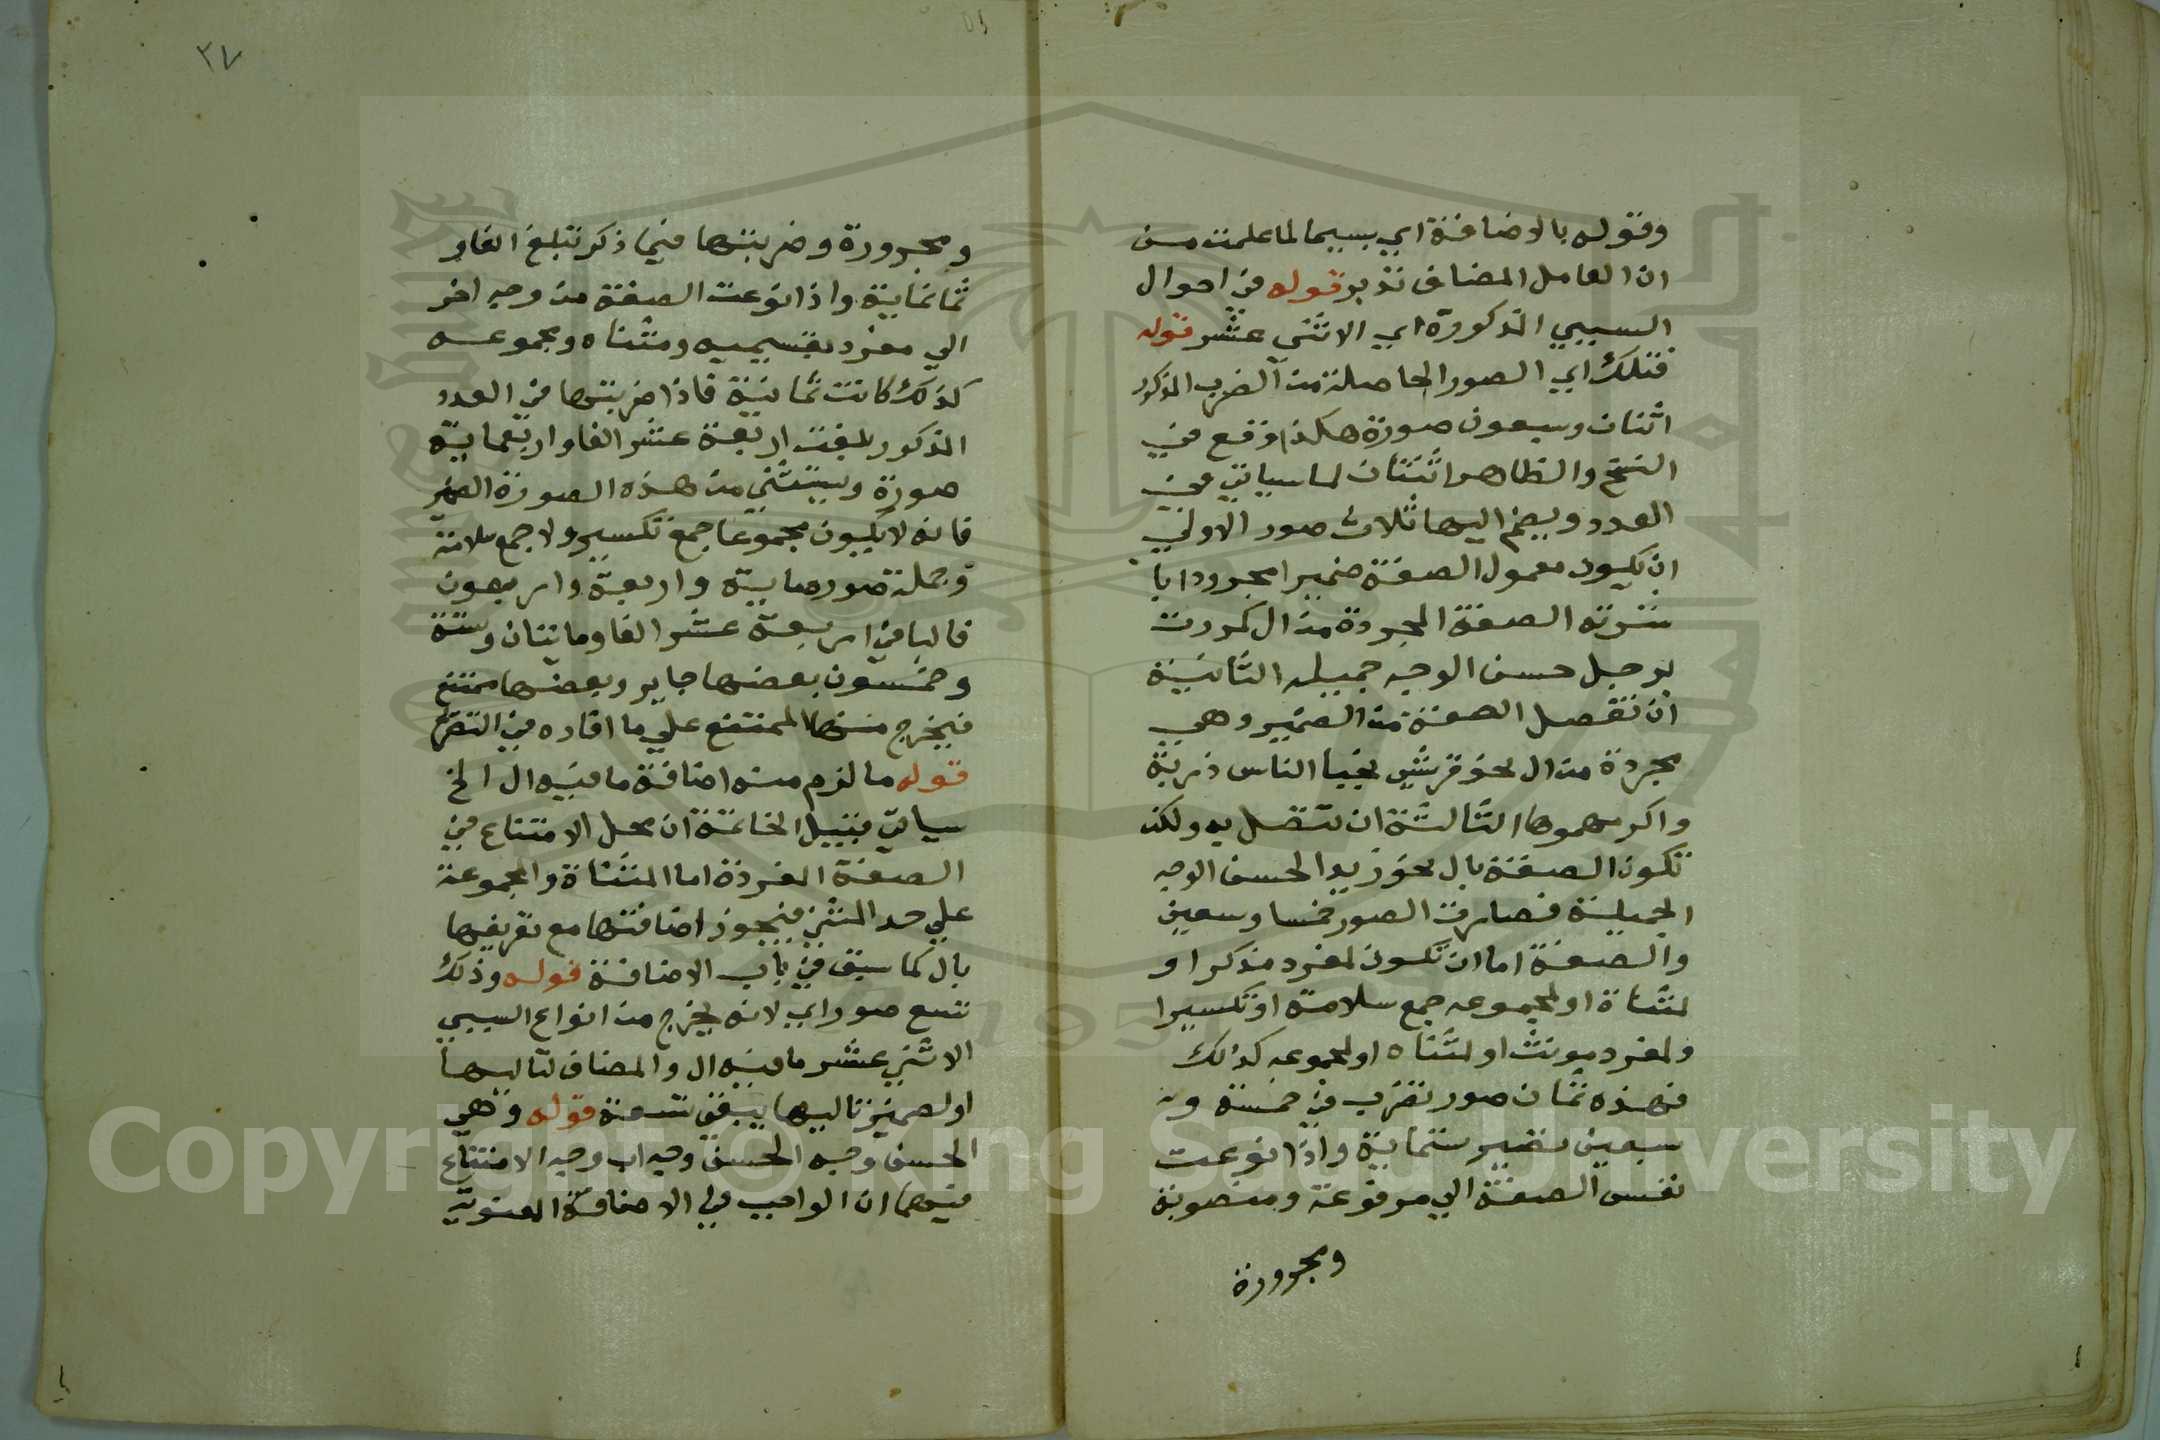 وقوله بالاضافة اي بسببها لما علمت من
ان العامل المضاف تدبر قوله في احوال
السببي المذكورة اي الاثني عشر قوله
فتلك اي الصور الحاصلة من الضرب المذكور
اثنان وسبعون صورة هكذا وقع في
النسخ والظاهر اثنتان لما سياتي في
العدد ويضم اليها ثلاث صور الاولي
ان يكون معمول الصفة ضميرا مجرورا با
شرته الصفة المجردة من ال كمررت
برجل حسن الوجه جميله الثانية
ان تفصل الصفة من الضمير وهي
مجردة من ال نحو قريش نجبا الناس ذرية
واكرمهموها الثالثة ان تتصل به ولكن
تكون الصفة بال نحو زيد الحسن الوجه
الجميله فصارت الصور خمسا وسبعين
والصفة اما ان تكون لمفرد مذكر او
لمثناة او لمجموعه جمع سلامة او تكسيرا
ولمفرد مونث او لمثناه او لمجموعه كذلك
فهذه ثمان صور تضرب في خمسة و
سبعين تصير ستماية واذا نوعت
نفس الصفة الي مرفوعة ومنصوبة
ومجرورة
٣٧
ومجرورة وضربتها فيما ذكر تبلغ الفا و
ثمانماية واذا نوعت الصفة من وجه اخر
الي مفرد بقسيميه ومثناه ومجموعه
كذلك كانت ثمانية فاذا ضربتها في العدد
المذكور بلغت اربعة عشر الفا واربعماية
صورة ويستثني من هذه الصورة الضمير
فانه لا يكون مجموعا جمع تكسير ولا جمع سلامة
وجملة صورها مايية واربعة واربعون
فالباقي اربعة عشر الفا ومايتان وستة
وخمسون بعضها جايز وبعضها ممتنع
فيخرج منها الممتنع علي ما افاده في
قوله ما لزم منه اضافة ما فيه ال الخ
سياتي قبيل الخاتمة ان محل الامتناع في
الصفة المفردة اما المثناة والمجموعة
علي حد المثني فيجوز اضافتها مع تعريفها
بال كما سبق في باب الاضافة قوله وذلك
تسع صور اي لانه يخرج من انواع السببي
الاثني عشر ما فيه ال والمضاف لتاليها
او لضمير تاليها يبقي تسعة قوله وهي
الحسن وجه الحسن وجه اب وجه الامتناع
فيهما ان الواجب في الاضافة المعنوية
Copyright © King Saud University
1957